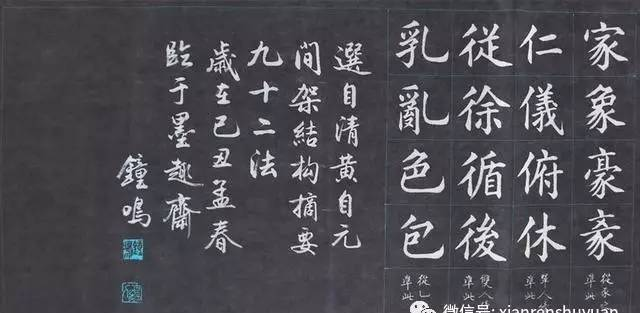 家象豪
仁儀俯休
従徐循後
乳亂色包
準此
準此
準此
準此
選自清黄自元
間架結构摘要
九十二法
歲在己丑孟春
臨于墨趣齋
鐘鳴
微信号: xianrenshuyuan